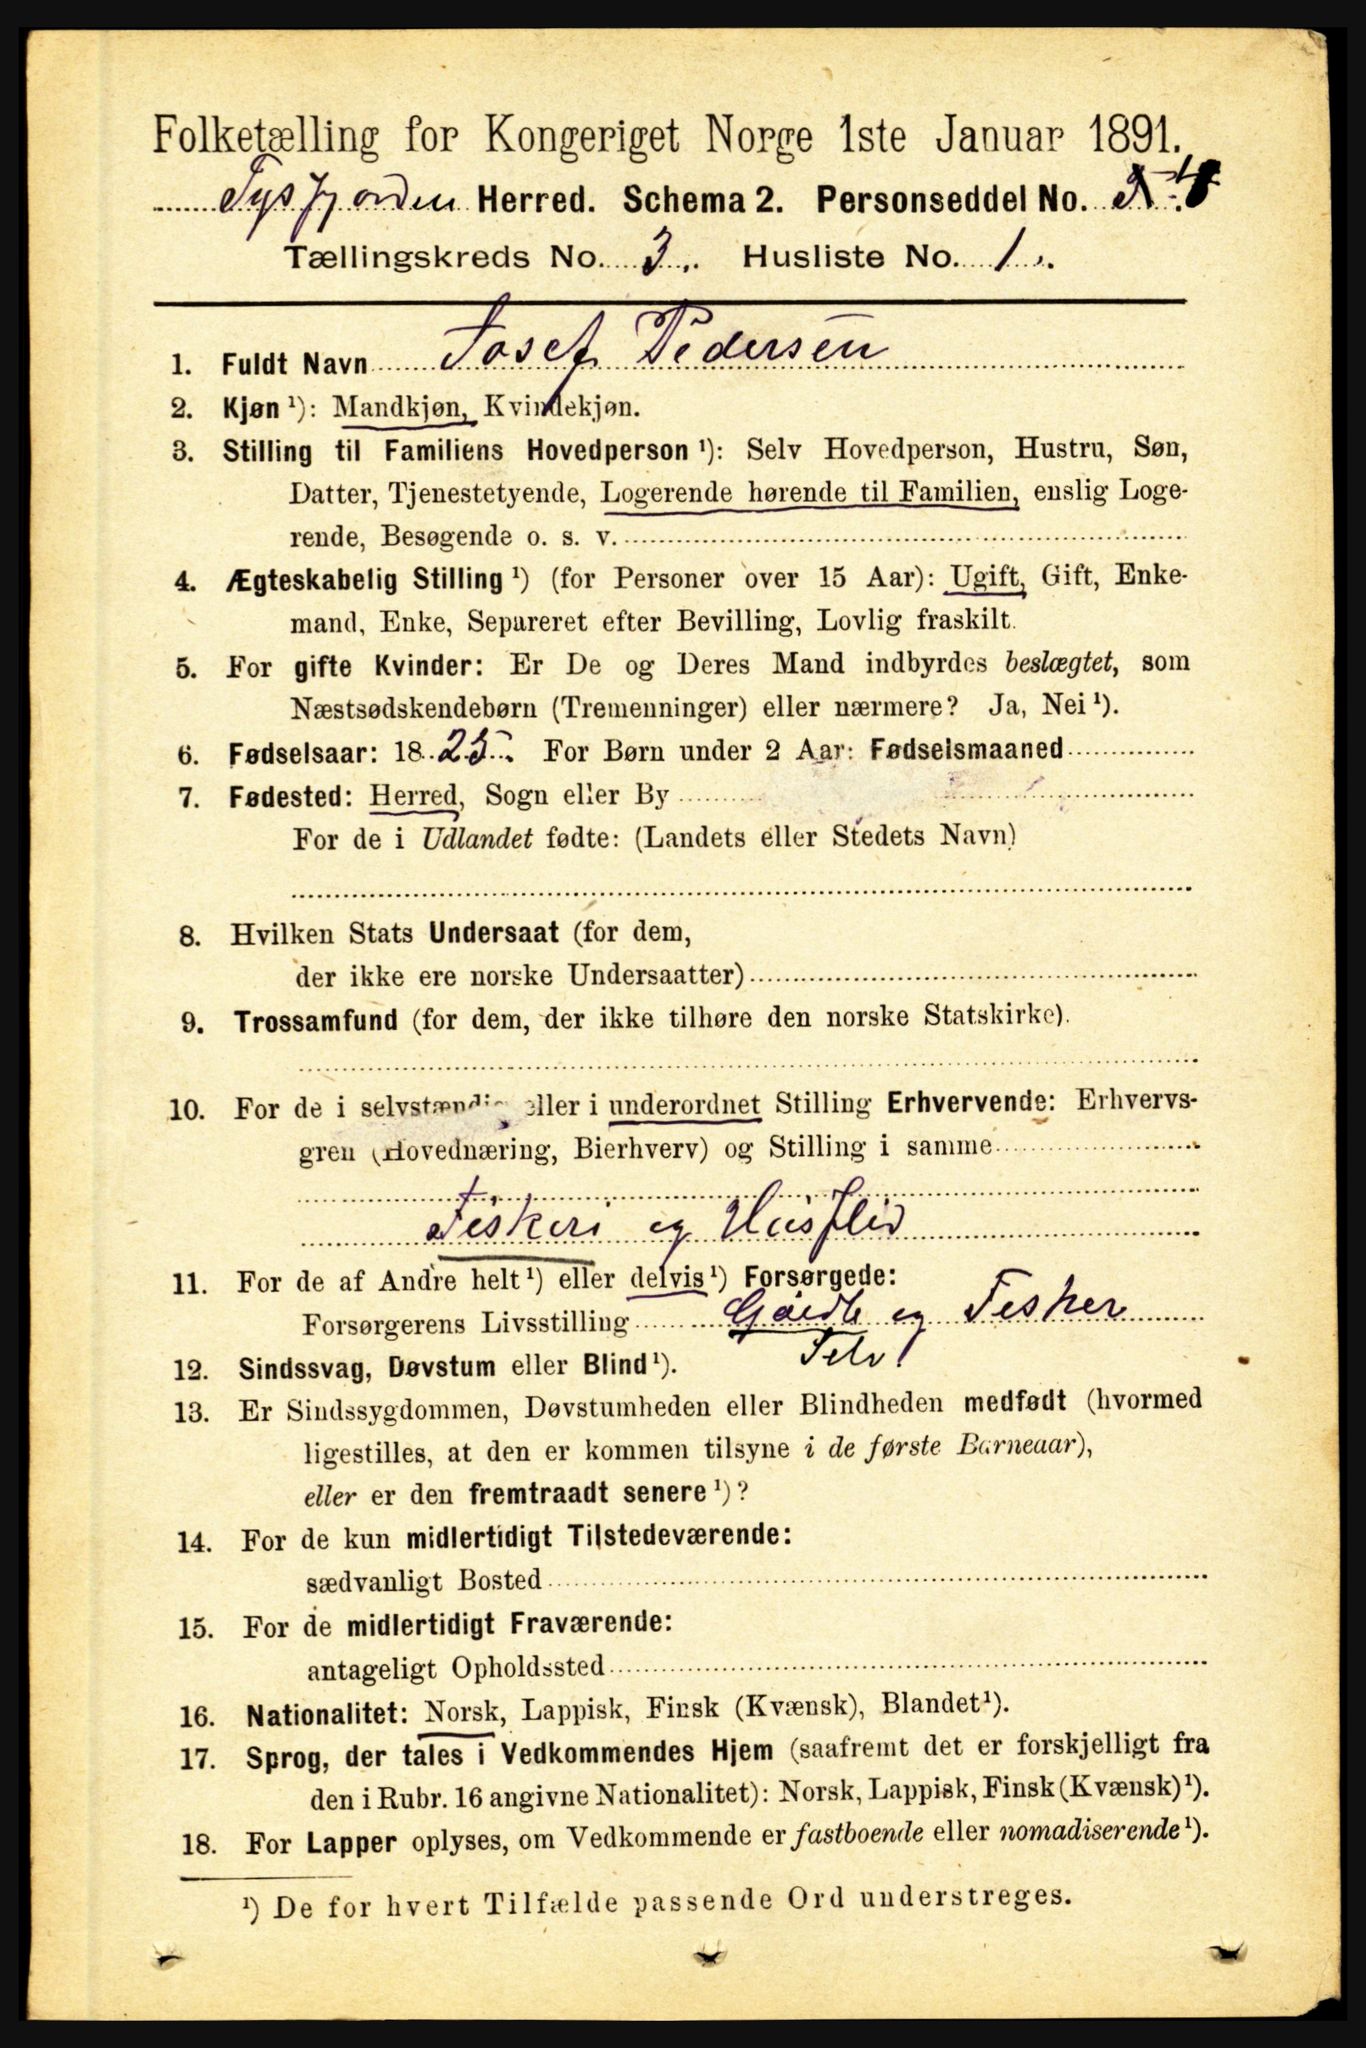 Folketælling for Kongeriget Norge 1ste Januar 1891.
Tysfjorden Herred. Schema 2. Personseddel No.
Tællingskreds No. 3. Husliste No. 1.
1. Fuldt Navn Josef Pedersen
2. Kjøn ¹): Mandkjøn, Kvindekjøn.
3. Stilling til Familiens Hovedperson ¹): Selv Hovedperson, Hustru, Søn,
Datter, Tjenestetyende, Logerende hørende til Familien, enslig Loge-
rende, Besøgende o. s. v.
4. Ægteskabelig Stilling ¹) (for Personer over 15 Aar): Ugift, Gift, Enke-
mand, Enke, Separeret efter Bevilling, Lovlig fraskilt.
5. For gifte Kvinder: Er De og Deres Mand indbyrdes beslægtet, som
Næstsødskendebørn (Tremenninger) eller nærmere? Ja, Nei ¹).
6. Fødselsaar: 1825. For Børn under 2 Aar: Fødselsmaaned
7. Fødested: Herred, Sogn eller By
For de i Udlandet fødte: (Landets eller Stedets Navn)
8. Hvilken Stats Undersaat (for dem,
der ikke ere norske Undersaatter)
9. Trossamfund (for dem, der ikke tilhøre den norske Statskirke).
10. For de i selvstændig eller i underordnet Stilling Erhvervende: Erhvervs-
gren (Hovednæring, Bierhverv) og Stilling i samme
Fiskeri og Husflid
11. For de af Andre helt ¹) eller delvis ¹) Forsørgede:
Forsørgerens Livsstilling Gaardb og Fisker
12. Sindssvag, Døvstum eller Blind ¹). Selv
13. Er Sindssygdommen, Døvstumheden eller Blindheden medfødt (hvormed
ligestilles, at den er kommen tilsyne i de første Barneaar),
eller er den fremtraadt senere ¹)?
14. For de kun midlertidigt Tilstedeværende:
sædvanligt Bosted
15. For de midlertidigt Fraværende:
antageligt Opholdssted
16. Nationalitet: Norsk, Lappisk, Finsk (Kvænsk), Blandet ¹).
17. Sprog, der tales i Vedkommendes Hjem (saafremt det er forskjelligt fra
den i Rubr. 16 angivne Nationalitet): Norsk, Lappisk, Finsk (Kvænsk) ¹).
18. For Lapper oplyses, om Vedkommende er fastboende eller nomadiserende ¹).
¹) De for hvert Tilfælde passende Ord understreges.